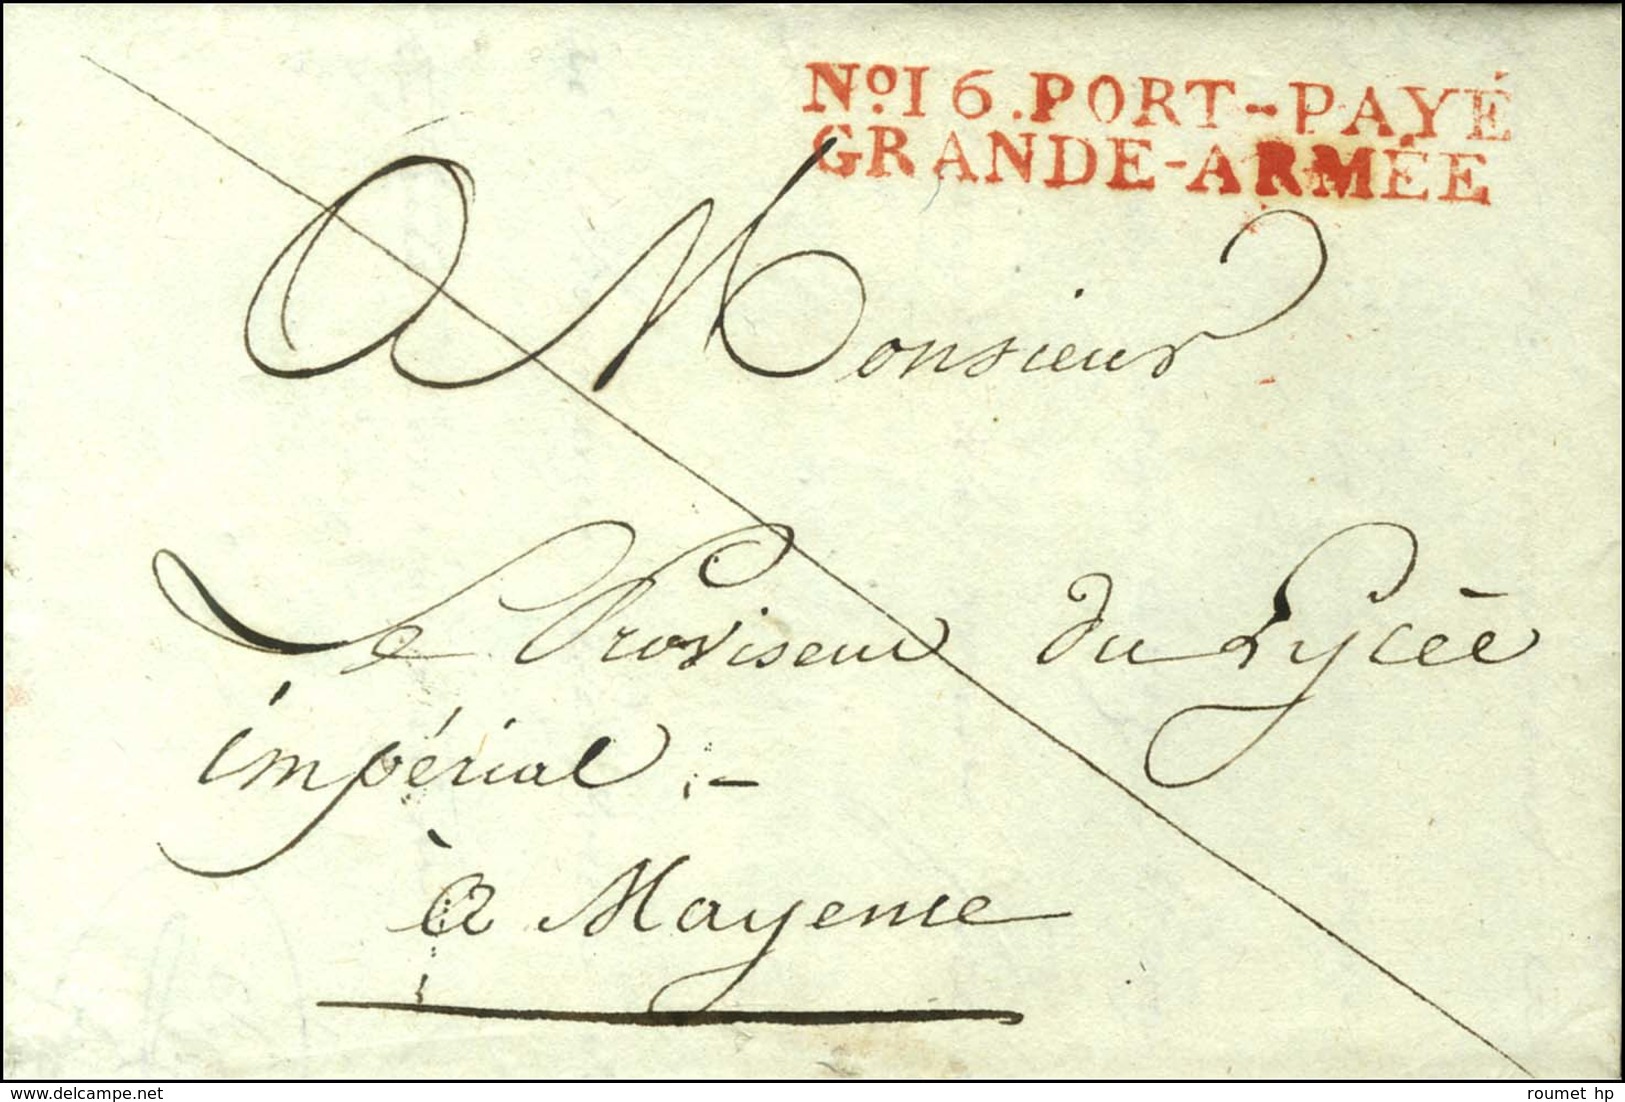 No. 16. PORT-PAYÉ
GRANDE-ARMÉE
A Monsieur
Le Proviseur du Lycée
impérial.-
à Mayence
roumet hp